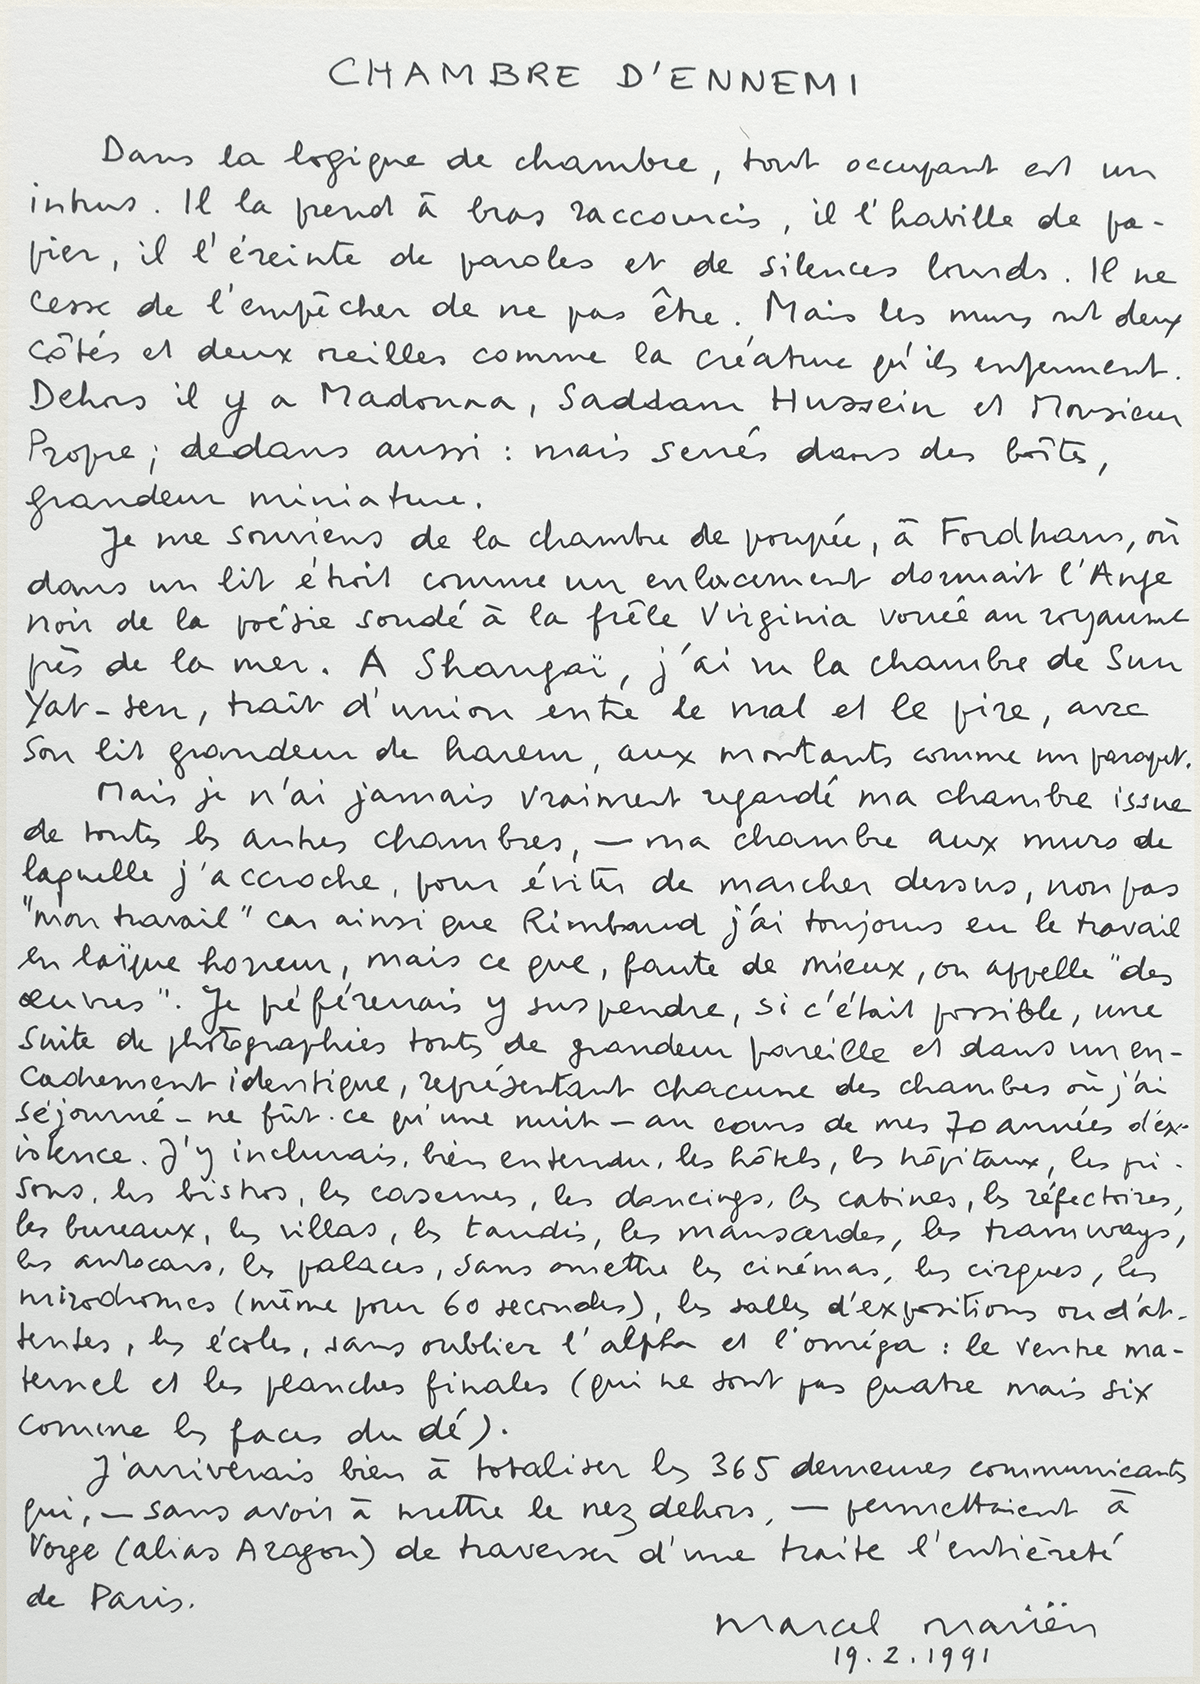 CHAMBRE D'ENNEMI
Dans la logique de chambre, tout occupant est un
intrus. Il la prend à bras raccourcis, il l'habille de pa-
pier, il l'éreinte de paroles et de silences lourds. Il ne
cesse de l'empêcher de ne pas être. Mais les murs ont deux
côtés et deux oreilles comme la créature qu'ils enferment.
Dehors il y a Madonna, Saddam Hussein et Monsieur
Propre ; dedans aussi : mais serrés dans des boîtes,
grandeur miniature.
Je me souviens de la chambre de poupée, à Fordham, où
dans un lit étroit comme un enlacement dormait l'Ange
noir de la poésie soudé à la frêle Virginia vouée au royaume
près de la mer. A Shangaï, j'ai vu la chambre de Sun
Yat-sen, trait d'union entre le mal et le pire, avec
son lit grandeur de harem, aux montants comme un paraquet.
Mais je n'ai jamais vraiment regardé ma chambre issue
de toutes les autres chambres, — ma chambre aux murs de
laquelle j'accroche, pour éviter de marcher dessus, non pas
"mon travail" car ainsi que Rimbaud j'ai toujours eu le travail
en laïque horreur, mais ce que, faute de mieux, on appelle "des
œuvres". Je préférerais y suspendre, si c'était possible, une
suite de photographies toutes de grandeur pareille et dans un en-
cadrement identique, représentant chacune des chambres où j'ai
séjourné – ne fût-ce qu'une nuit – au cours de mes 70 années d'ex-
istence. J'y inclurais, bien entendu, les hôtels, les hôpitaux, les pri-
sons, les bistros, les casernes, les dancings, les cabines, les réfectoires,
les bureaux, les villas, les taudis, les mansardes, les tramways,
les autocars, les palaces, sans omettre les cinémas, les cirques, les
mirodromes (même pour 60 secondes), les salles d'expositions ou d'at-
tentes, les écoles, sans oublier l'alpha et l'oméga : le ventre ma-
ternel et les planches finales (qui ne sont pas quatre mais six
comme les faces du dé).
J'arriverais bien à totaliser les 365 demeures communicantes
qui, — sans avoir à mettre le nez dehors, — permettaient à
Vorge (alias Aragon) de traverser d'une traite l'entièreté
de Paris.
Marcel Mariën
19.2.1991